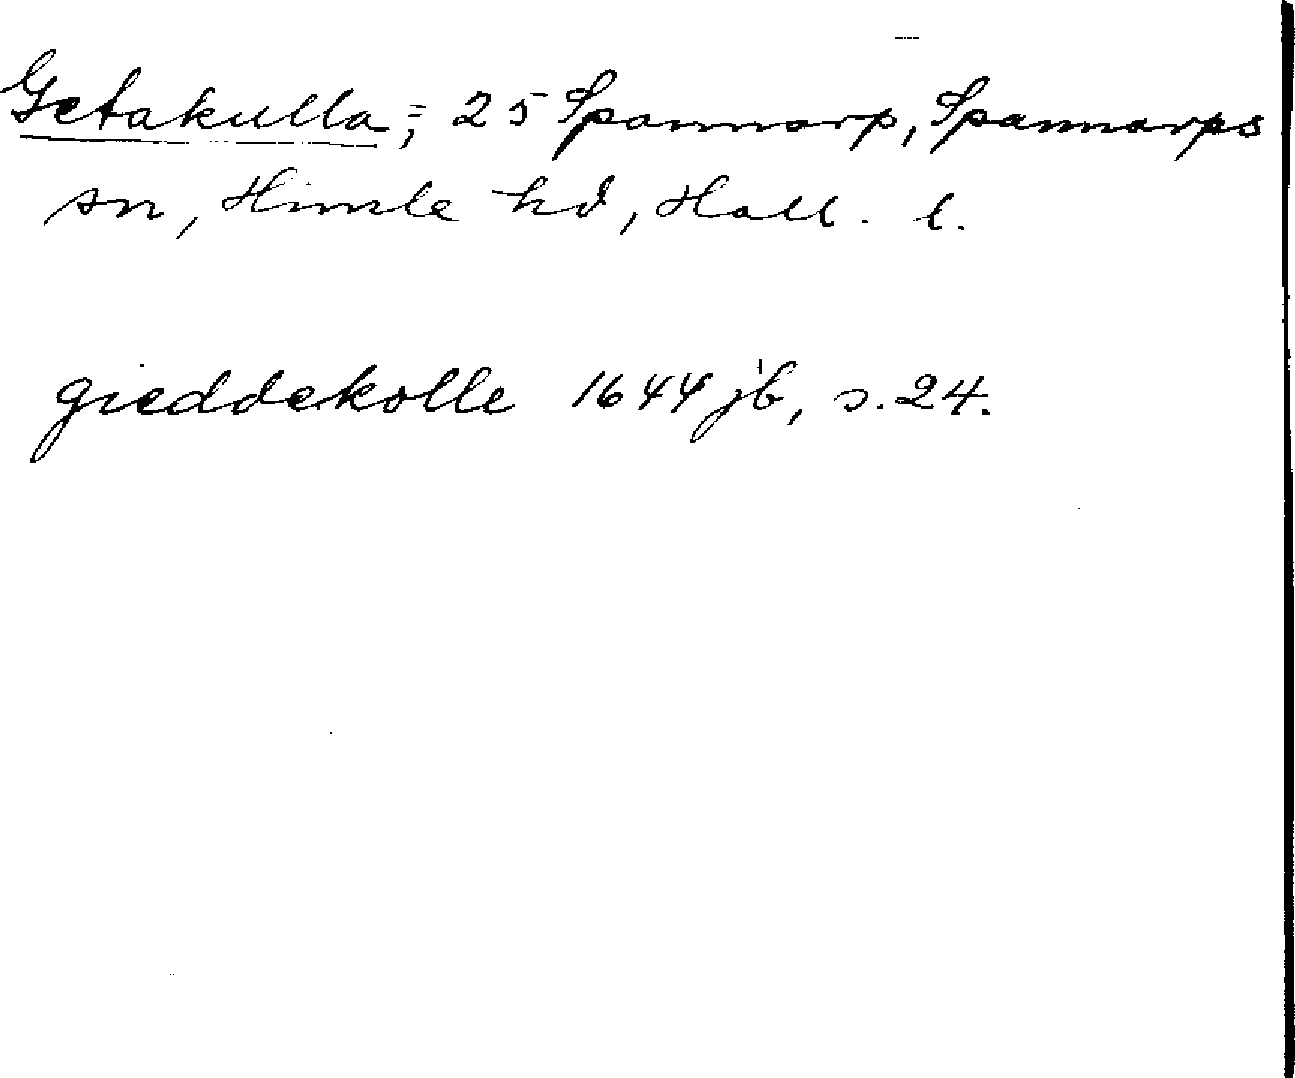 Getakulla, = 25 Spannarp, Spannarps
sn, Himle hd, Hall. l.
gieddekolle 1644 jb, s. 24.